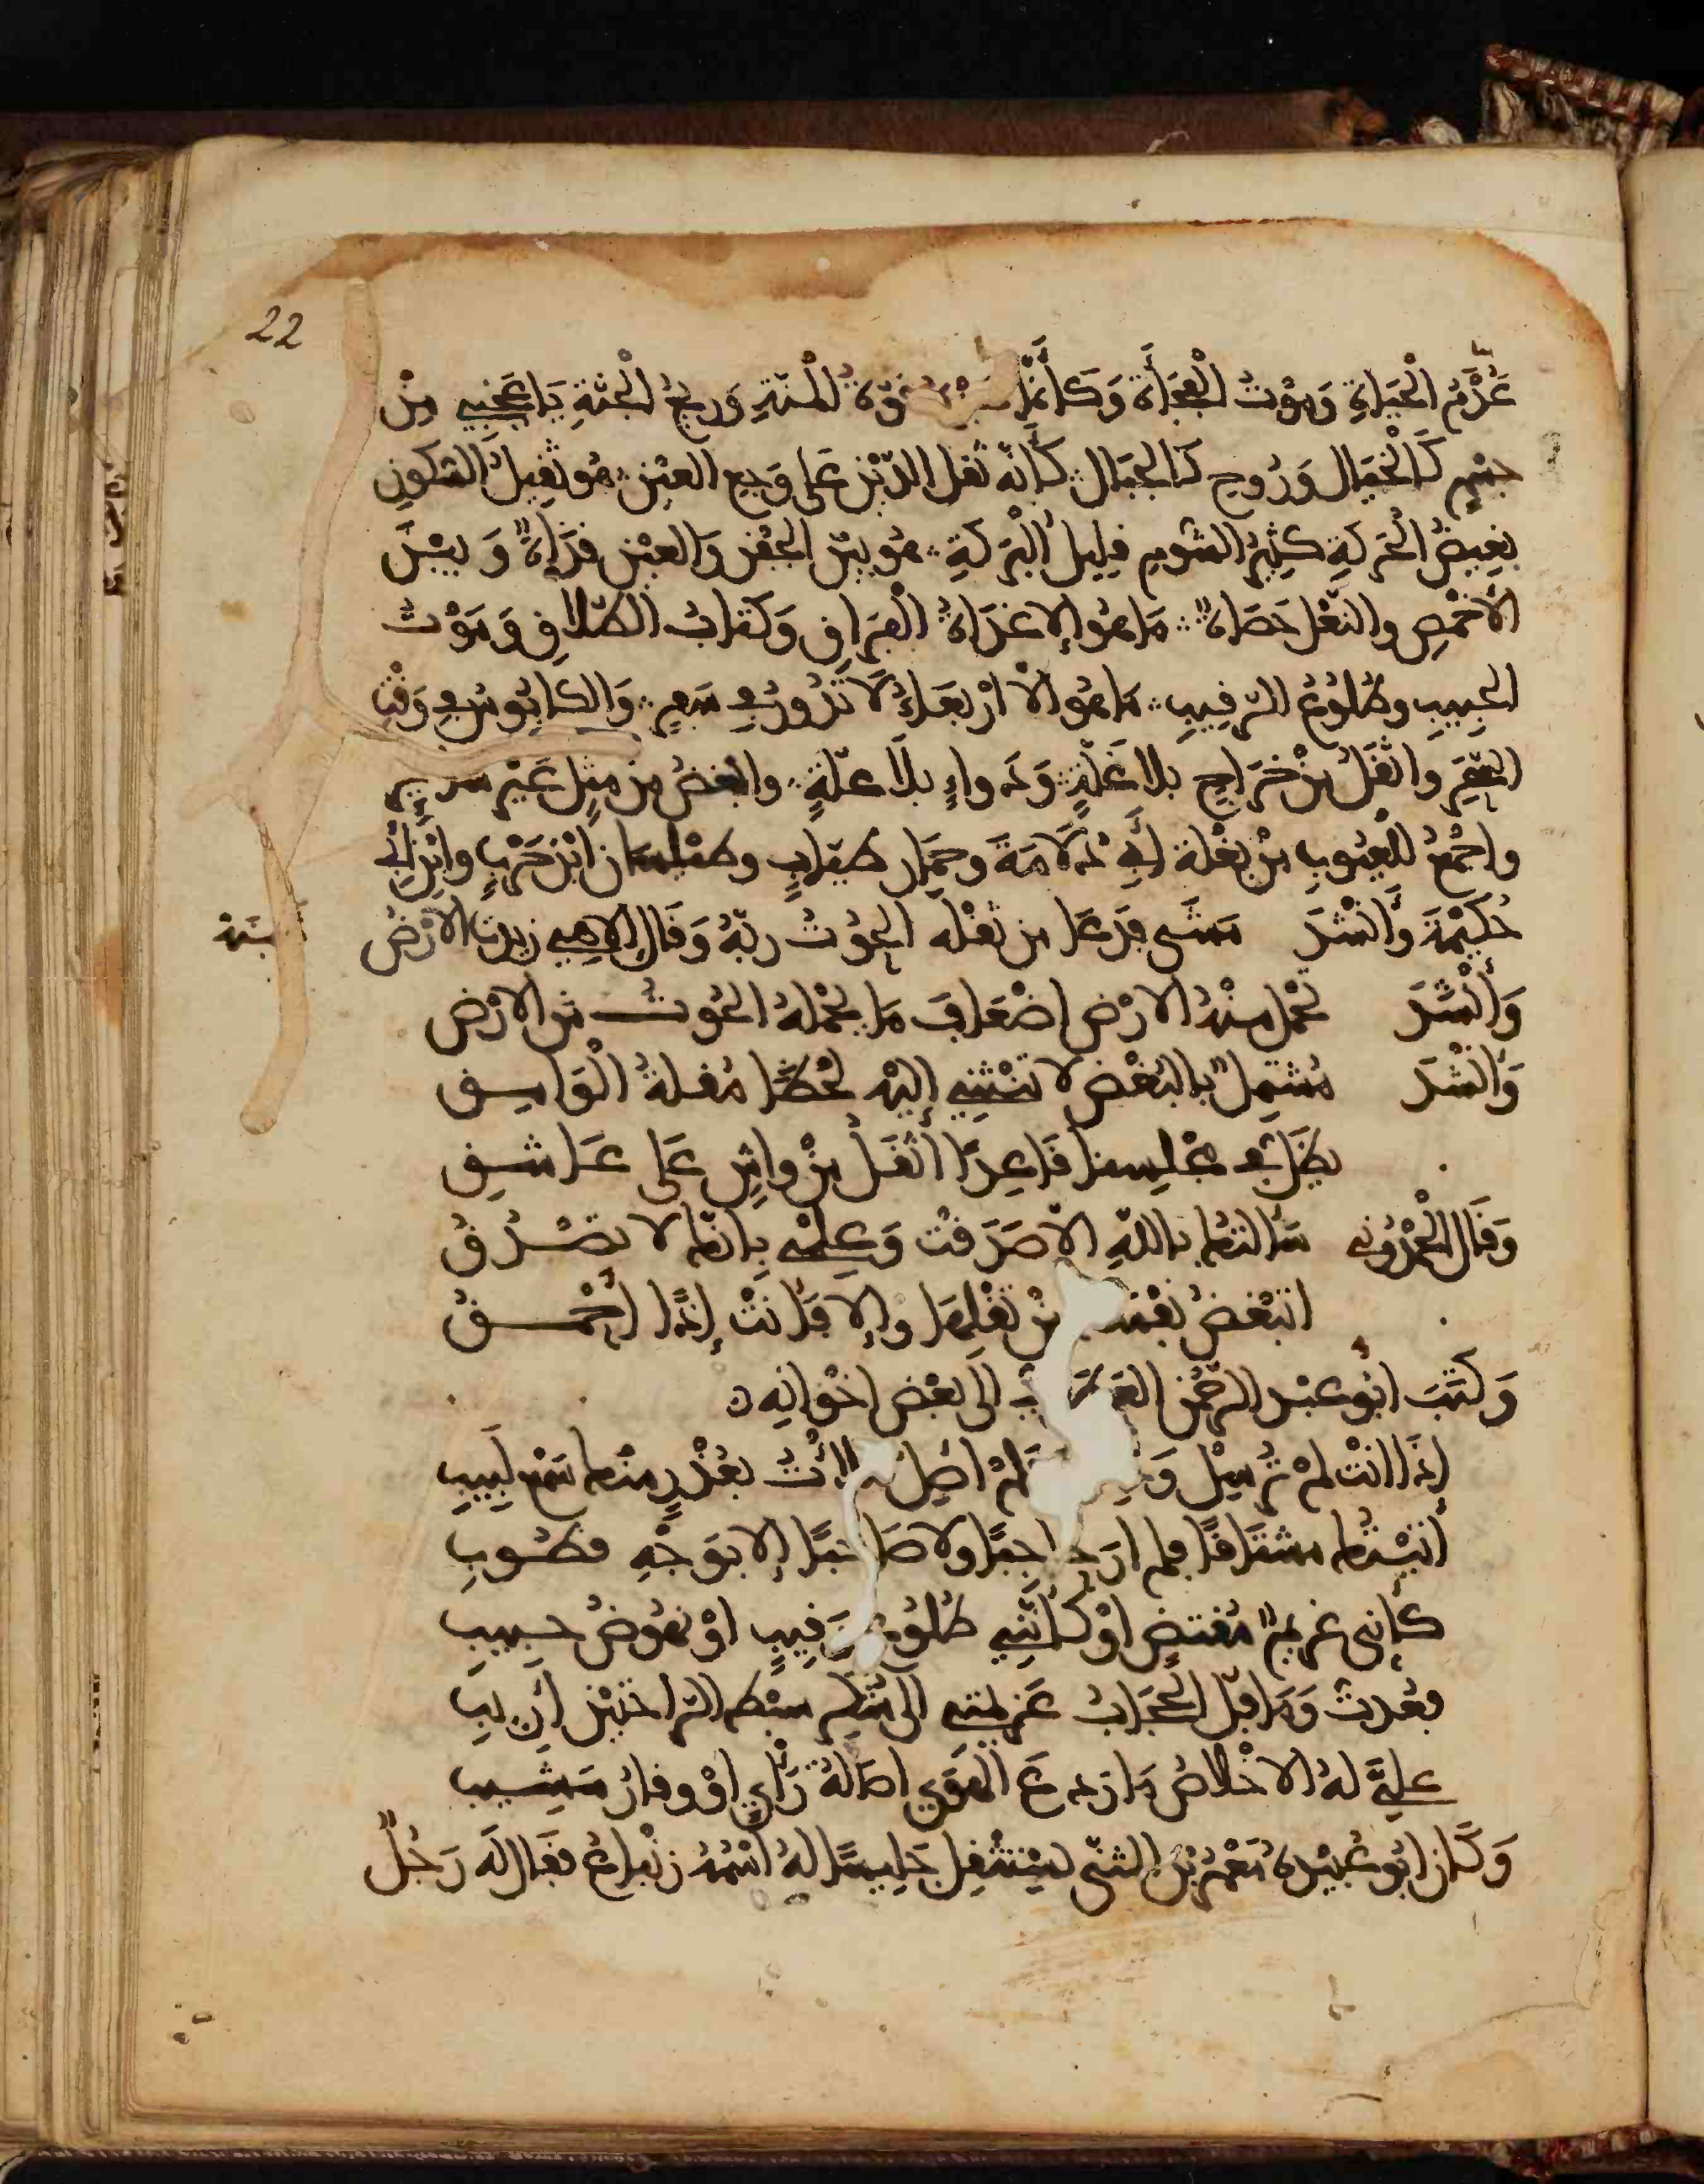 22
عَدَمُ الْحَيَاةِ وَمَوْتُ الْفُجَأَةِ وَكَأَنَّمَا قُوَّةُ الْمُنَّةِ وَرِيحُ الْجَنَّةِ يَا عَجَبِي مِنْ
جِسْمٍ كَالْخَيَالِ وَرُوحٍ كَالْجِبَالِ كَأَنَّهُ ثِقَلُ الدَّيْنِ عَلَى وَجَعِ الْعَيْنِ هُوَ ثَقِيلُ السُّكُونِ
بَغِيضُ الْحَرَكَةِ كَثِيرُ الشُّومِ قَلِيلُ الْبَرَكَةِ هُوَ بَيْنَ الْجَفْنِ وَالْعَيْنِ قَذَاةٌ وَبَيْنَ
الْأَخْمَصِ وَالنَّعْلِ حَصَاةٌ مَا هُوَ إِلَّا غَدَاةُ الْفِرَاقِ وَكِتَابُ الطَّلَاقِ وَمَوْتُ
الْحَبِيبِ وَطُلُوعُ الرَّقِيبِ مَا هُوَ إِلَّا أَرْبِعَاءُ لَا تَدُورُ فِي صَفَرٍ وَالْكَابُوسُ فِي وَقْتِ
السَّحَرِ وَأَثْقَلُ مِنْ خَرَاجٍ بِلَا غَلَّةٍ وَدَوَاءٍ بِلَا عِلَّةٍ وَأَبْغَضُ مِنْ مِثْلٍ غَيْرِ سَائِرٍ
وَأَجْمَعُ لِلْعُيُوبِ مِنْ بَغْلَةِ أَبِي دُلَامَةَ وَحِمَارِ طَيَّابٍ وَطَيْلَسَانِ ابْنِ حَرْبٍ وَابْنِ أَبِي
حُكَيْمَةَ وَأَنْشَدَ مَشَى فَدَعَا مِنْ ثِقْلِهِ الْحُوتُ رَبَّهُ وَقَالَ إِلَاهِي زِيدَتِ الْأَرْضُ
وَأَنْشَدَ تَحْمِلُ مِنْهُ الْأَرْضُ أَضْعَافَ مَا يَحْمِلُهُ الْحُوتُ مِنَ الْأَرْضِ
وَأَنْشَدَ مُشْتَمِلٌ بِالْبُغْضِ لَا تَنْثَنِي إِلَيْهِ لَحْظًا مُقْلَةُ الْوَامِقِ
يَظَلُّ فِي مَجْلِسِنَا قَاعِدًا أَثْقَلُ مِنْ وَاشٍ عَلَى عَاشِقِ
وَقَالَ الْحَمْدُونِي سَأَلْتُهَا بِاللَّهِ إِلَّا صَدَقْتَ وَعِلْمِي بِأَنَّهَا لَا تَصْدُقُ
أَتُبْغِضُ مِنْ ثِقْلِهَا وَإِلَّا فَأَنْتَ إِذًا أَحْمَقُ
وَكَتَبَ أَبُو عَبْدِ الرَّحْمٰنِ إِلَى بَعْضِ إِخْوَانِهِ
إِذَا أَنْتَ لَمْ تُرْسِلْ فَلَمْ أَصِلْ بِعُذْرٍ مِنْهَا سَمْعَ لَبِيبِ
أَتَيْتُهَا مُشْتَاقًا فَلَمْ أَرَ حَاجِبًا وَلَا صَاحِبًا إِلَّا بِوَجْهٍ قَطُوبِ
كَأَنِّي غَرِيمٌ مُقْتَضٍ أَوْ كَأَنَّنِي طُلُوعُ رَقِيبٍ أَوْ نُهُوضُ حَبِيبِ
فَعُدْتُ وَمَا فَلَّ الْحِجَابُ عَزِيمَتِي إِلَى سَبْطِ الرَّاحَتَيْنِ أَرِيبِ
عَلَيَّ لَهُ الْإِخْلَاصُ مَا رَدَعَ الْهَوَى أَصَالَةُ رَأْيٍ أَوْ وَقَارُ مَشِيبِ
وَكَانَ أَبُو عُبَيْدَةَ مَعْمَرُ بْنُ الْمُثَنَّى يَسْتَثْقِلُ جَلِيسًا لَهُ اسْمُهُ زِنْبَاعٌ فَقَالَ لَهُ رَجُلٌ